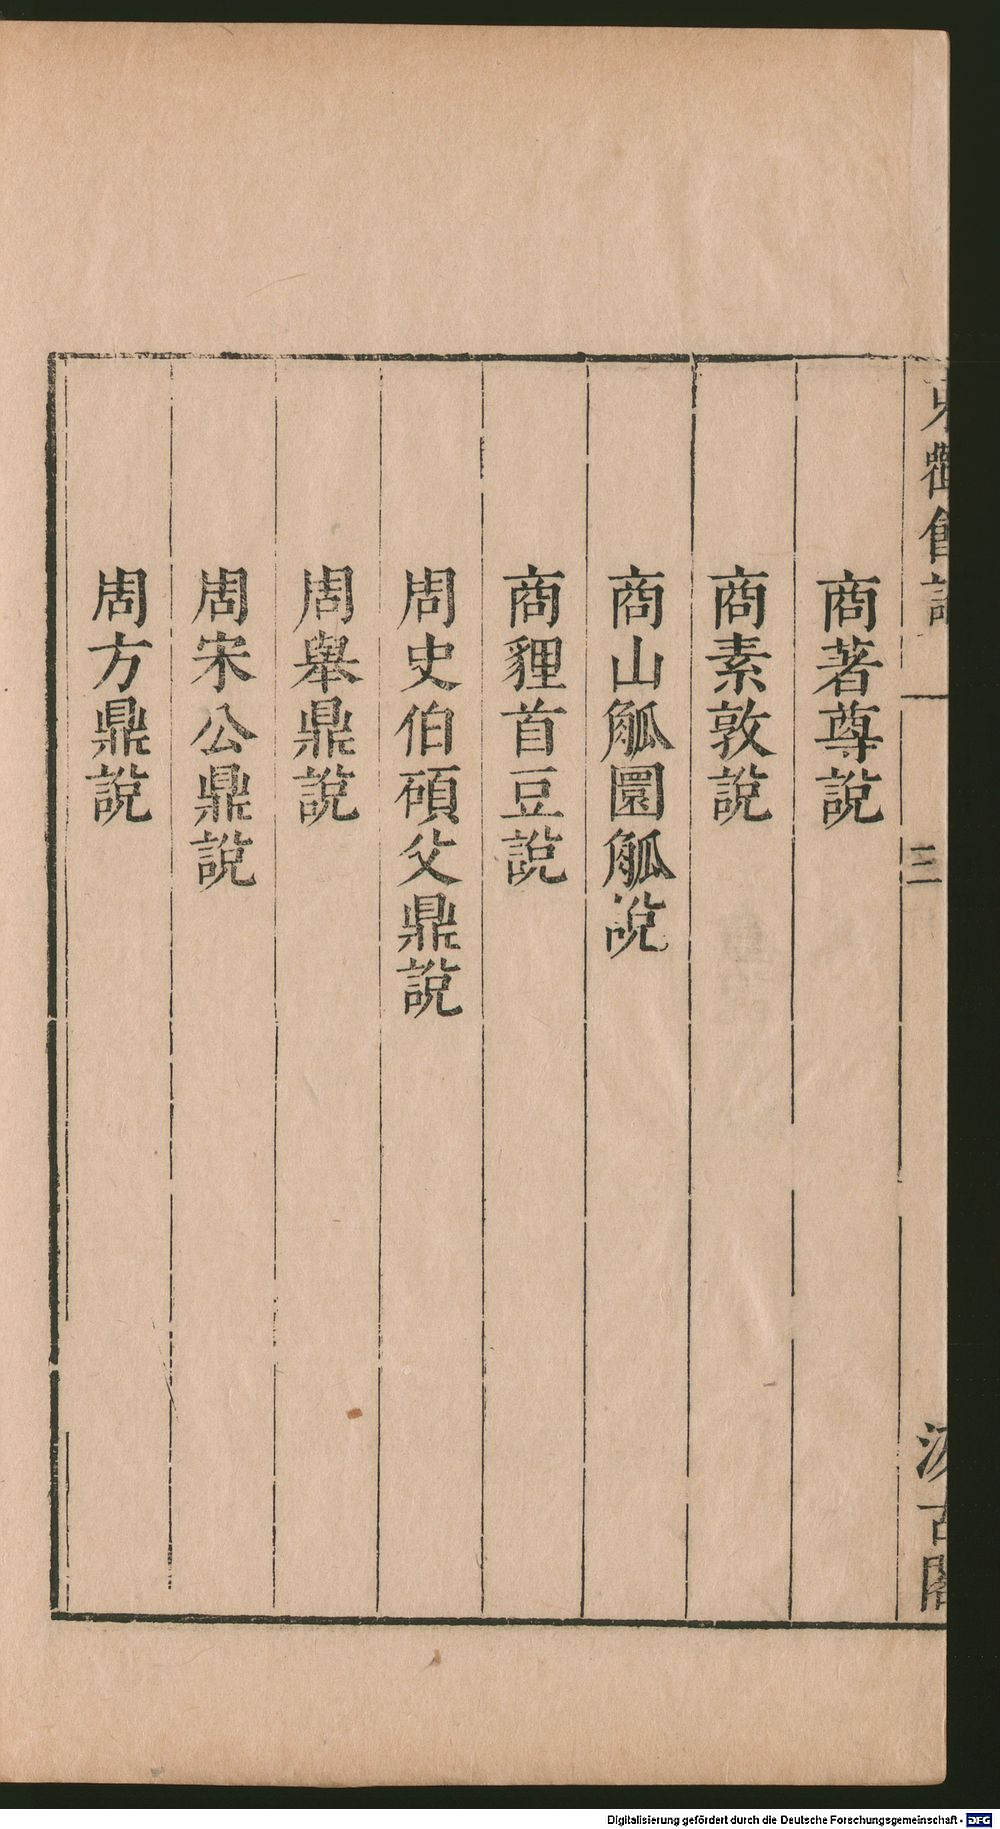 東觀餘論
三
汲古閣
商著尊說
商素敦說
商山觚圜觚說
商貍首豆說
周史伯碩父鼎說
周舉鼎說
周宋公鼎說
周方鼎說
Digitalisierung gefördert durch die Deutsche Forschungsgemeinschaft - DFG